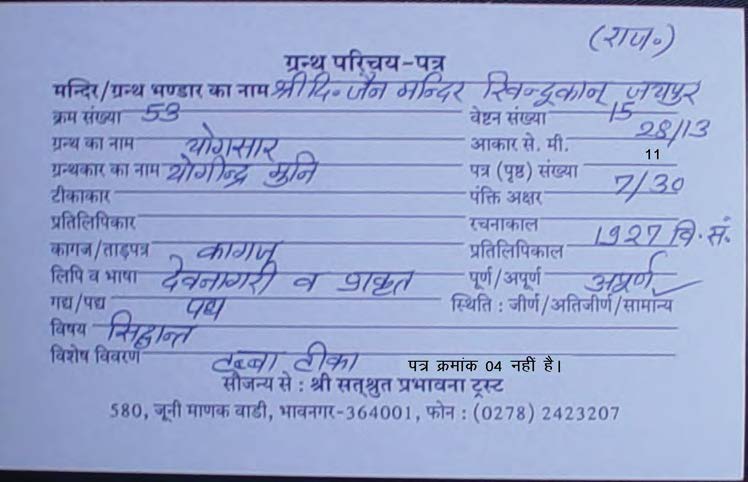 (राज०)
ग्रन्थ परिचय-पत्र
मन्दिर/ग्रन्थ भण्डार का नाम श्री दि० जैन मन्दिर खिन्दूकान् जयपुर
क्रम संख्या 53 वेष्टन संख्या 15
ग्रन्थ का नाम योगसार आकार से. मी. 28/13
ग्रन्थकार का नाम योगीन्द्र मुनि पत्र (पृष्ठ) संख्या 11
टीकाकार पंक्ति अक्षर 7/30
प्रतिलिपिकार रचनाकाल
कागज/ताड़पत्र कागज् प्रतिलिपिकाल 1927 वि. सं.
लिपि व भाषा देवनागरी व प्राकृत पूर्ण/अपूर्ण अपूर्ण
गद्य/पद्य पद्य स्थिति : जीर्ण/अतिजीर्ण/सामान्य
विषय सिद्धान्त
विशेष विवरण टब्बा टीका पत्र क्रमांक 04 नहीं है।
सौजन्य से : श्री सत्श्रुत प्रभावना ट्रस्ट
580, जूनी माणक वाडी, भावनगर-364001, फोन : (0278) 2423207